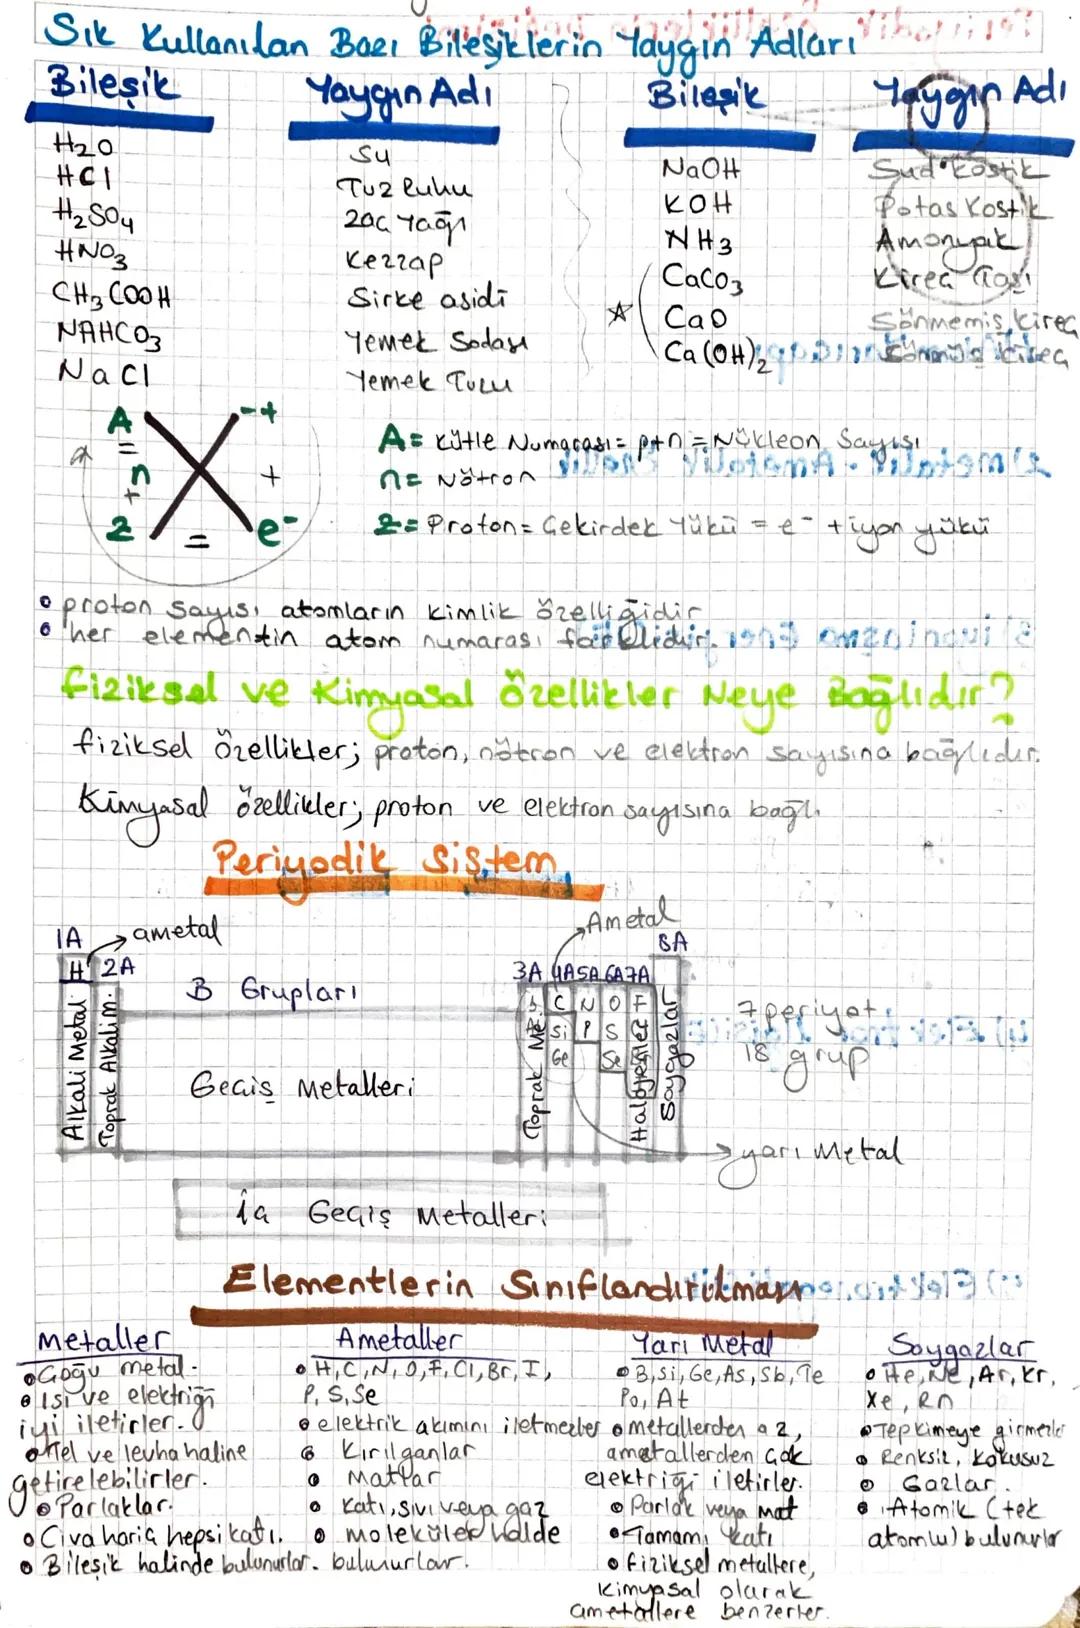 Sık Kullanılan Bazı Bileşiklerin Yaygın Adları
Bileşik Yaygın Adı Bileşik Yaygın Adı
H2O Su
HCl Tuz Ruhu
H2SO4 Zaç Yağı
HNO3 Kezzap
CH3COOH Sirke asidi
NAHCO3 Yemek Sodası
NaCl Yemek Tuzu
NaOH Sud Kostik
KOH Potas Kostik
NH3 Amonyak
CaCO3 Kireç Taşı
CaO Sönmemiş Kireç
Ca(OH)2 Sönmüş Kireç
A -+
= n + +
Z = e-
A = Kütle Numarası = p+n = Nükleon Sayısı
n = Nötron
Z = Proton = Çekirdek Yükü = e- + iyon yükü
proton sayısı atomların kimlik özelliğidir
her elementin atom numarası farklıdır.
Fiziksel ve Kimyasal Özellikler Neye Bağlıdır?
fiziksel özellikler; proton, nötron ve elektron sayısına bağlıdır.
Kimyasal özellikler; proton ve elektron sayısına bağlı.
Periyodik Sistem
1A ametal Ametal 8A
H 2A 3A 4A 5A 6A 7A
B Grupları
C N O F
Si P S
Ge Se
Alkali Metal
Toprak Alkali m.
Geçiş Metalleri
Toprak Me.
Halojenler
Soygazlar
7 periyot
18 grup
yarı Metal
İç Geçiş Metalleri
Elementlerin Sınıflandırılması
Metaller
Çoğu metal.
Isı ve elektriği
iyi iletirler.
Tel ve levha haline
getirelebilirler.
Parlaklar.
Civa hariç hepsi katı.
Bileşik halinde bulunurlar.
Ametaller
H, C, N, O, F, Cl, Br, I,
P, S, Se
elektrik akımını iletmezler
Kırılganlar
Matlar
Katı, sıvı veya gaz
moleküler halde
bulunurlar.
Yarı Metal
B, Si, Ge, As, Sb, Te
Po, At
metallerden az,
ametallerden çok
elektriği iletirler.
Parlak veya mat
Tamamı katı
fiziksel metallere,
kimyasal olarak
ametallere benzerler.
Soygazlar
He, Ne, Ar, Kr,
Xe, Rn
Tepkimeye girmezler
Renksiz, kokusuz
Gazlar.
Atomik (tek
atomlu) bulunurlar